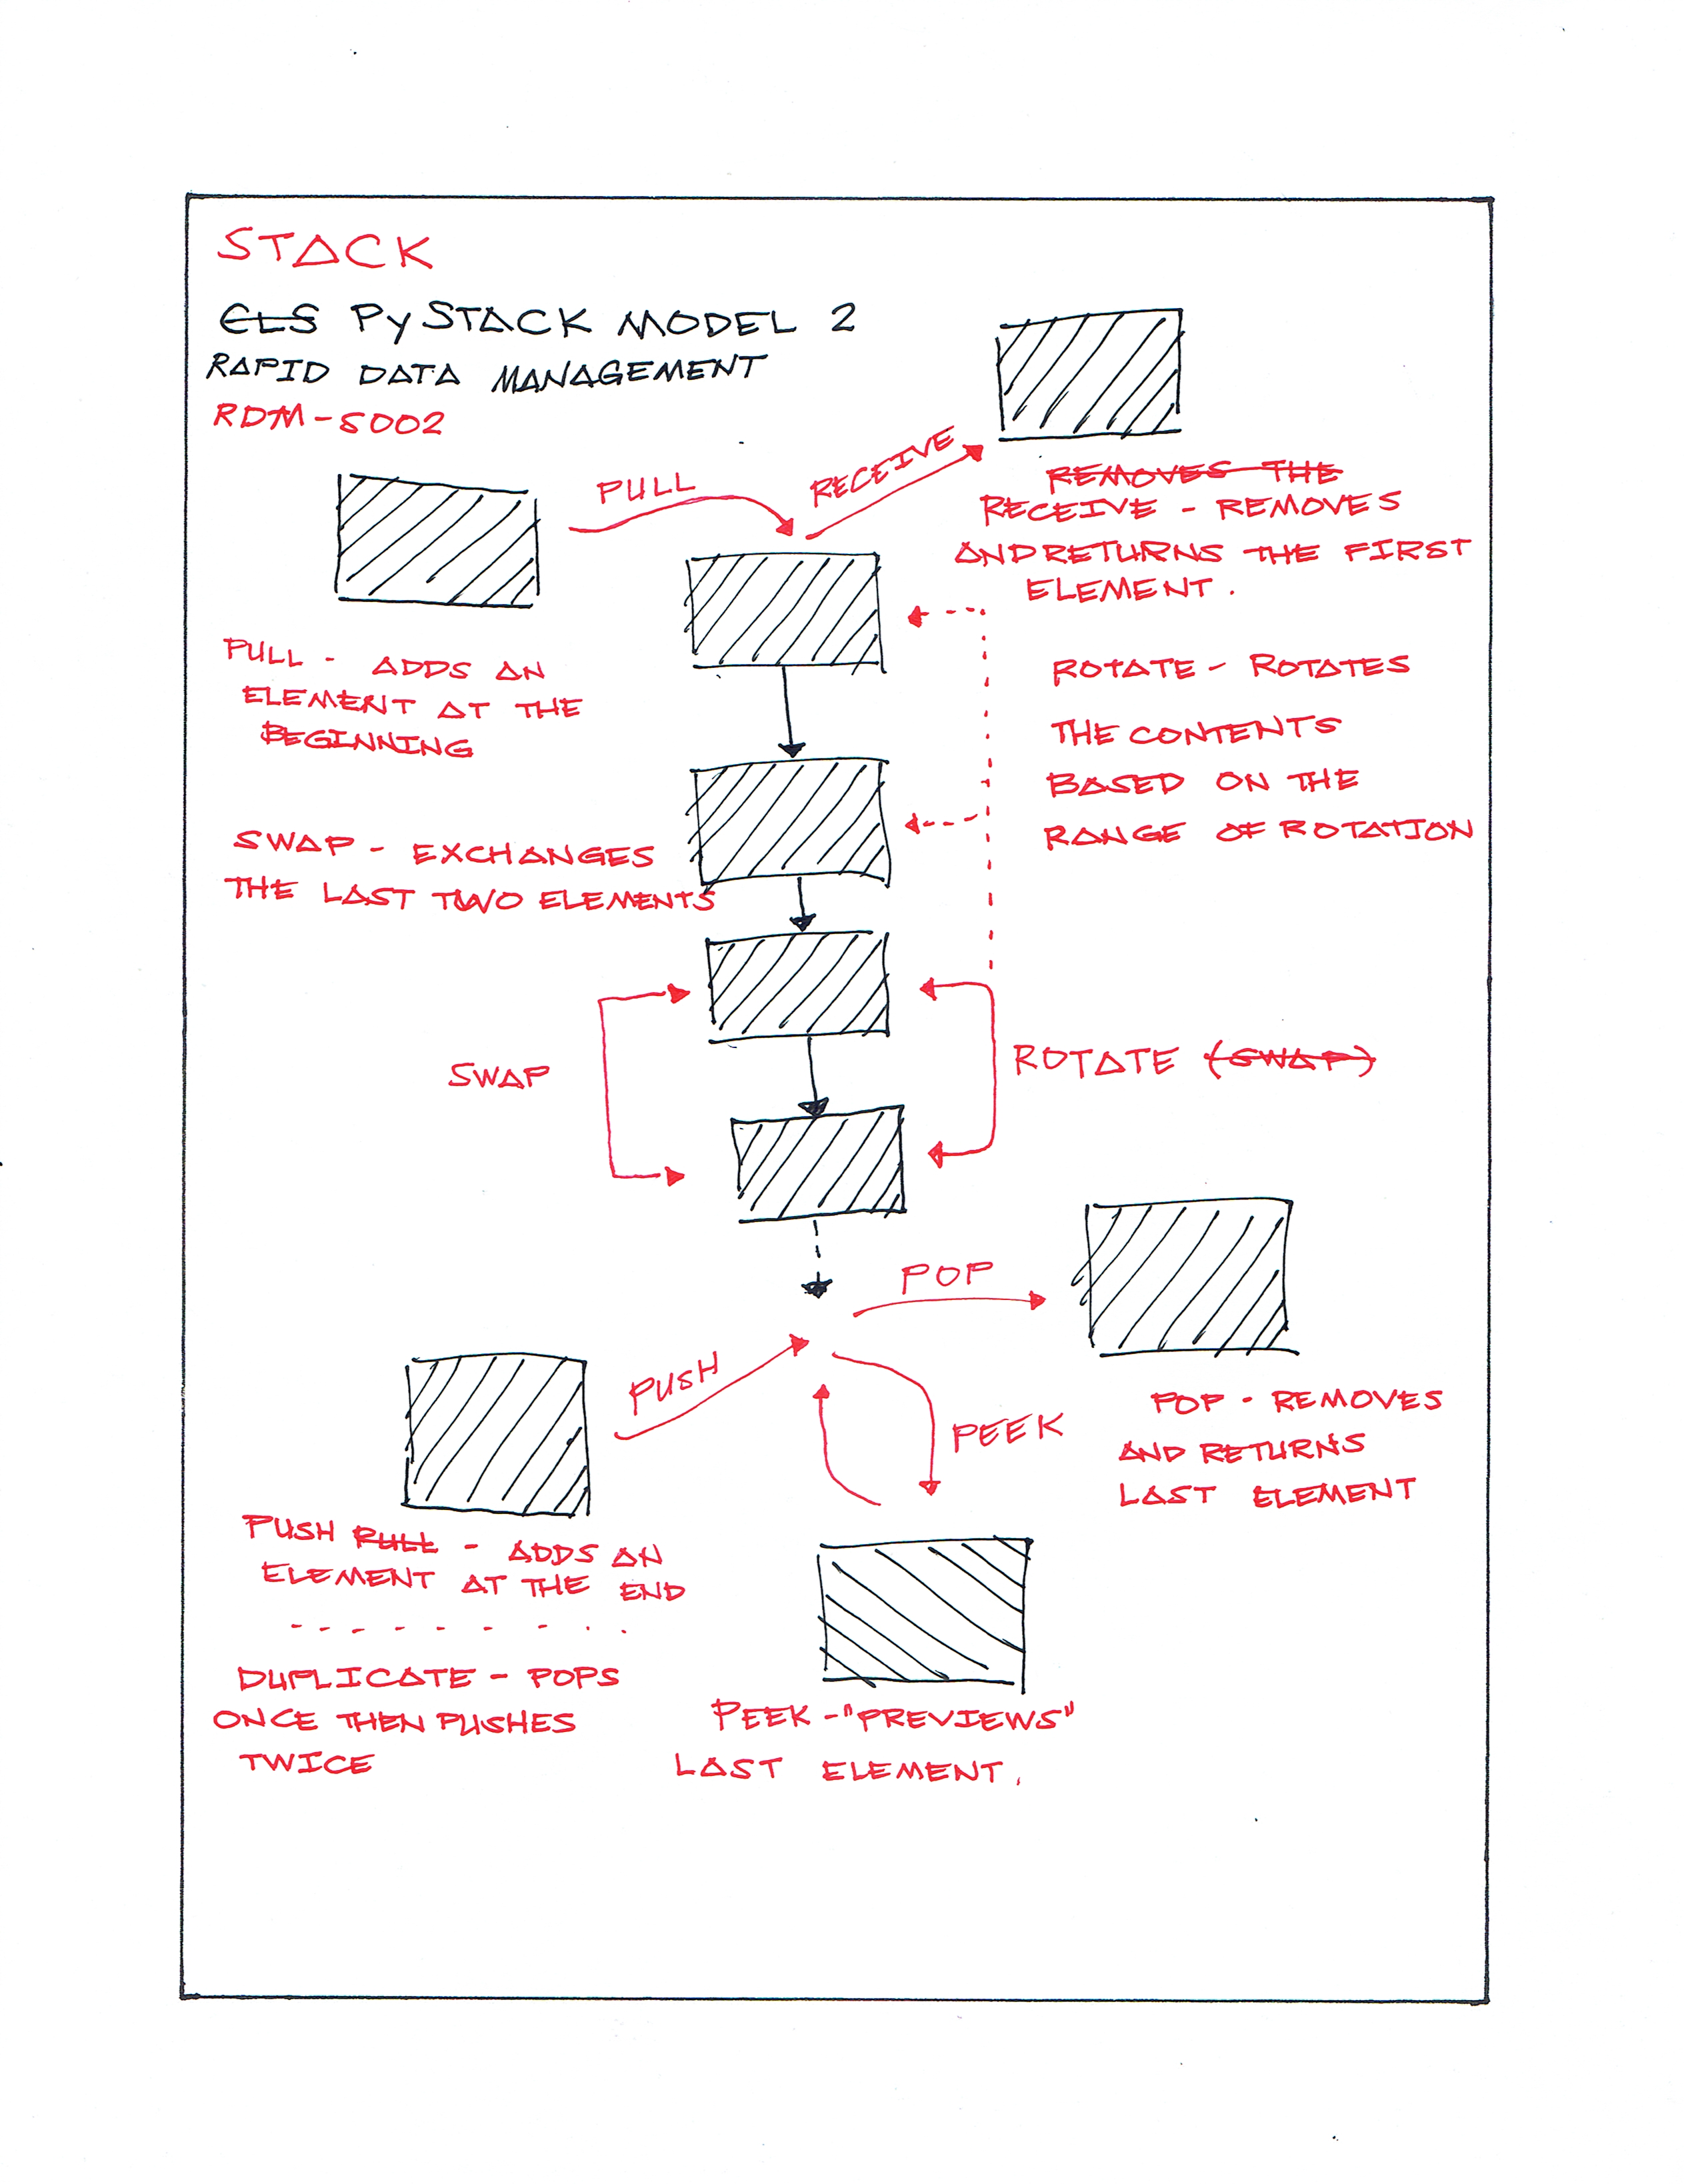 STACK
CLS PySTACK MODEL 2
RAPID DATA MANAGEMENT
RDM-S002
PULL
RECEIVE
REMOVES THE
RECEIVE - REMOVES
AND RETURNS THE FIRST
ELEMENT.
PULL - ADDS AN
ELEMENT AT THE
BEGINNING
ROTATE - ROTATES
THE CONTENTS
BASED ON THE
RANGE OF ROTATION
SWAP - EXCHANGES
THE LAST TWO ELEMENTS
SWAP
ROTATE (SWAP)
POP
PUSH
PEEK
POP - REMOVES
AND RETURNS
LAST ELEMENT
PUSH PULL - ADDS AN
ELEMENT AT THE END
DUPLICATE - POPS
ONCE THEN PUSHES
TWICE
PEEK - "PREVIEWS"
LAST ELEMENT.